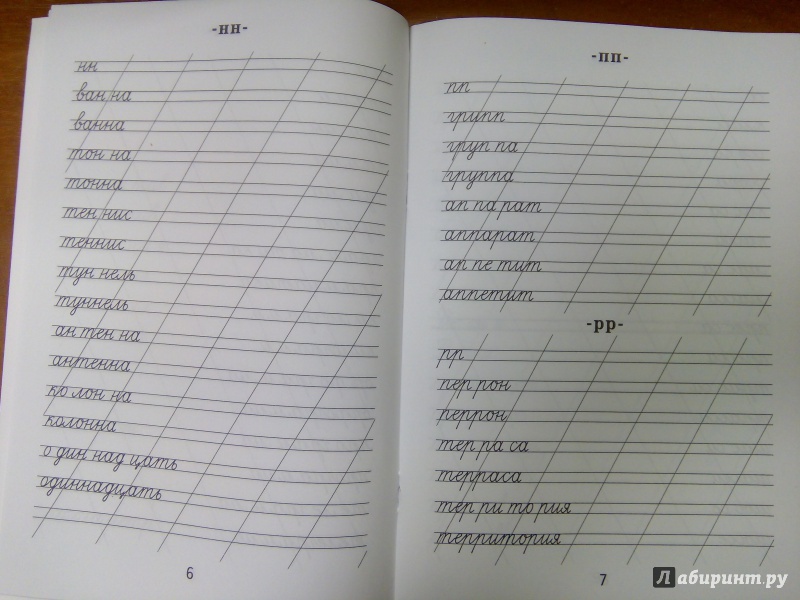 -нн-
нн
ван на
ванна
тон на
тонна
тен нис
теннис
тун нель
туннель
ан тен на
антенна
ко лон на
колонна
о дин над цать
одиннадцать
6
-пп-
пп
грипп
груп па
группа
ап па рат
аппарат
ап пе тит
аппетит
-рр-
рр
пер рон
перрон
тер ра са
терраса
тер ри то рия
территория
7
Лабиринт.ру